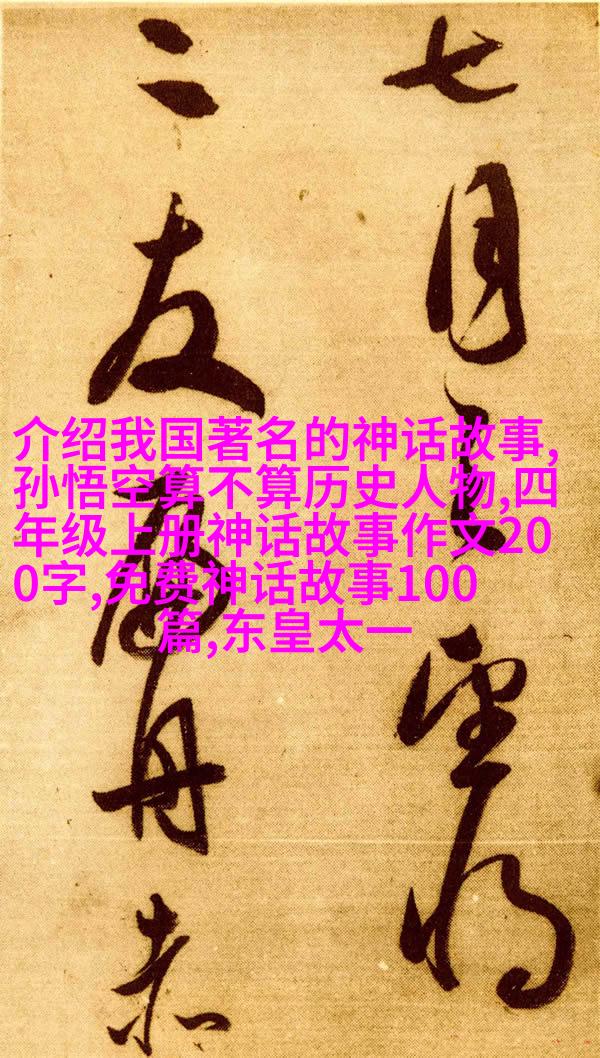 七月之望将
二友舟赤
介绍我国著名的神话故事,
孙悟空算不算历史人物,四
年级上册神话故事作文20
0字,免费神话故事100
篇,东皇太一